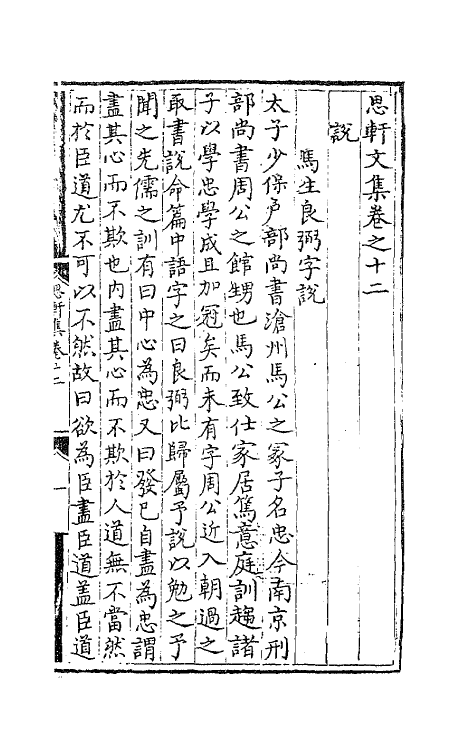 思軒文集卷之十二
說
馬生良弼字說
太子少保户部尚書滄州馬公之冢子名忠今南京刑
部尚書周公之館甥也馬公致仕家居篤意庭訓趨諸
子以學忠學成且加冠矣而未有字周公近入朝過之
取書說命篇中語字之曰良弼比歸屬予說以勉之予
聞之先儒之訓有曰中心為忠又曰發已自盡為忠謂
盡其心而不欺也内盡其心而不欺於人道無不當然
而於臣道尤不可以不然故曰欲為臣盡臣道盖臣道
思軒集卷十二
一